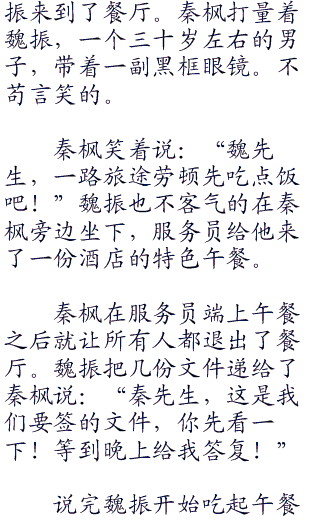 振来到了餐厅。秦枫打量着
魏振，一个三十岁左右的男
子，带着一副黑框眼镜。不
苟言笑的。
秦枫笑着说：“魏先
生，一路旅途劳顿先吃点饭
吧！”魏振也不客气的在秦
枫旁边坐下，服务员给他来
了一份酒店的特色午餐。
秦枫在服务员端上午餐
之后就让所有人都退出了餐
厅。魏振把几份文件递给了
秦枫说：“秦先生，这是我
们要签的文件，你先看一
下！等到晚上给我答复！”
说完魏振开始吃起午餐